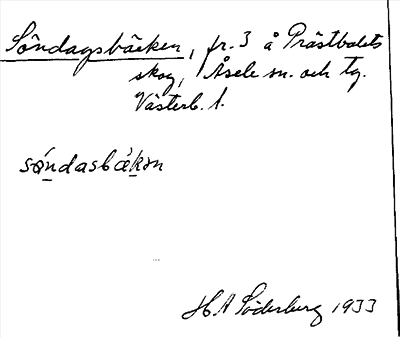 Söndagsbäcken, fr. 3 å Prästbolets
skog, Åsele sn. och tg.
Västerb. l.
söndasbäkɘn
H A Söderberg 1933